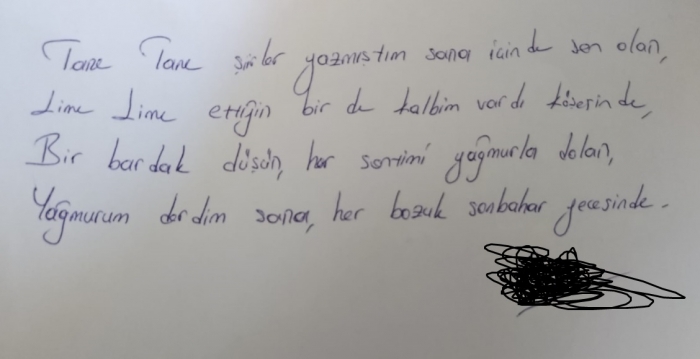 Tane Tane şiirler yazmıştım sana içinde sen olan,
Lime Lime ettiğin bir de kalbim vardı köşerinde,
Bir bardak düşün, her santimi yağmurla dolan,
Yağmurum derdim sana, her bozuk sonbahar gecesinde.